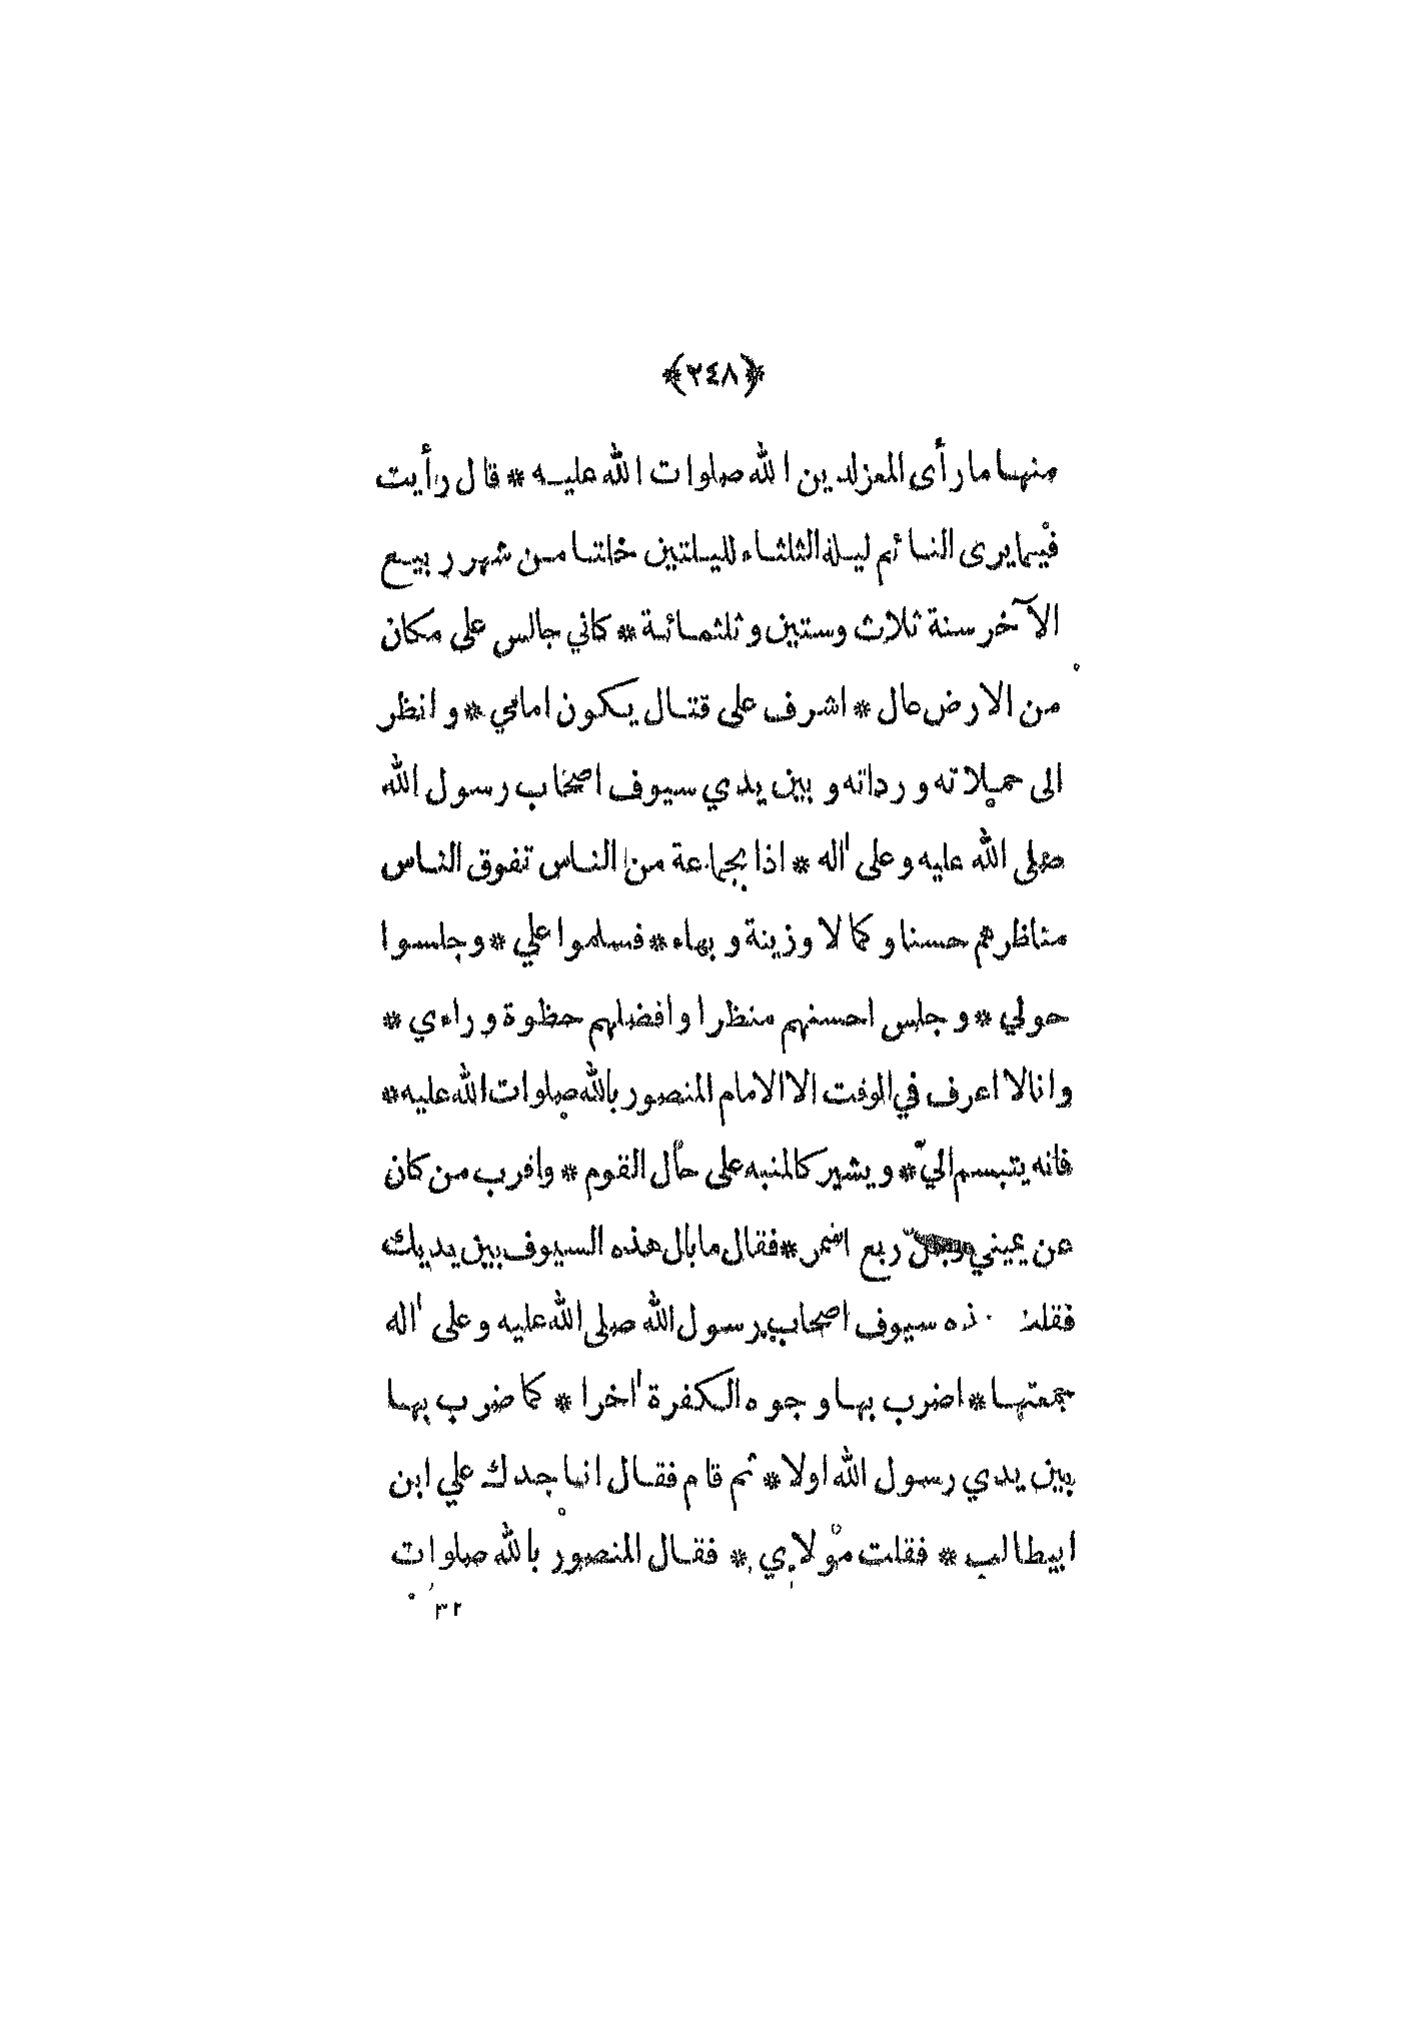 ﴿٢٤٨﴾
منها ما رأى المعزلدين الله صلوات الله عليه * قال رأيت
فيما يرى النائم ليلة الثلثاء لليلتين خلتا من شهر ربيع
الآخر سنة ثلاث وستين وثلثمائة * كاني جالس على مكان
من الارض عال * اشرف على قتال يكون امامي * وانظر
الى حملاته ورداته وبين يدي سيوف اصحاب رسول الله
صلى الله عليه وعلى اله * اذا بجماعة من الناس تفوق الناس
مناظرهم حسنا وكمالا وزينة وبهاء * فسلموا علي * وجلسوا
حولي * وجلس احسنهم منظرا وافضلهم حظوة وراءي *
وانا لا اعرف في الوقت الا الامام المنصور بالله صلوات الله عليه *
فانه يتبسم اليّ * ويشير كالمنبه على حال القوم * واقرب من كان
عن يميني رجل ربع اسمر * فقال ما بال هذه السيوف بين يديك
فقلت ذه سيوف اصحاب رسول الله صلى الله عليه وعلى اله
جمعتها * اضرب بها وجوه الكفرة اخرا * كما ضرب بها
بين يدي رسول الله اولا * ثم قام فقال انا جدك علي ابن
ابيطالب * فقلت مولاي * فقال المنصور بالله صلوات
٣٢